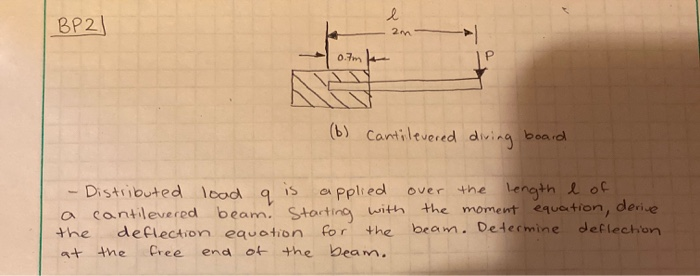 BP2
l
2m
0.7m
P
(b) Cantilevered diving board
- Distributed load q is applied over the length l of
a cantilevered beam. Starting with the moment equation, derive
the deflection equation for the beam. Determine deflection
at the free end of the beam.